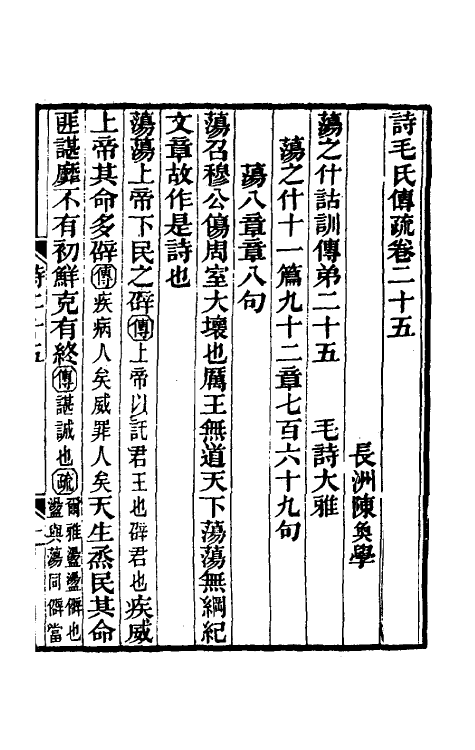 詩毛氏傳疏卷二十五
長洲陳奐學
蕩之什詁訓傳弟二十五 毛詩大雅
蕩之什十一篇九十二章七百六十九句
蕩八章章八句
蕩召穆公傷周室大壞也厲王無道天下蕩蕩無綱紀
文章故作是詩也
蕩蕩上帝下民之辟傳上帝以託君王也辟君也疾威
上帝其命多辟傳疾病人矣威罪人矣天生烝民其命
匪諶靡不有初鮮克有終傳諶誠也疏爾雅盪盪僻也
盪與蕩同僻當
詩二十五
一